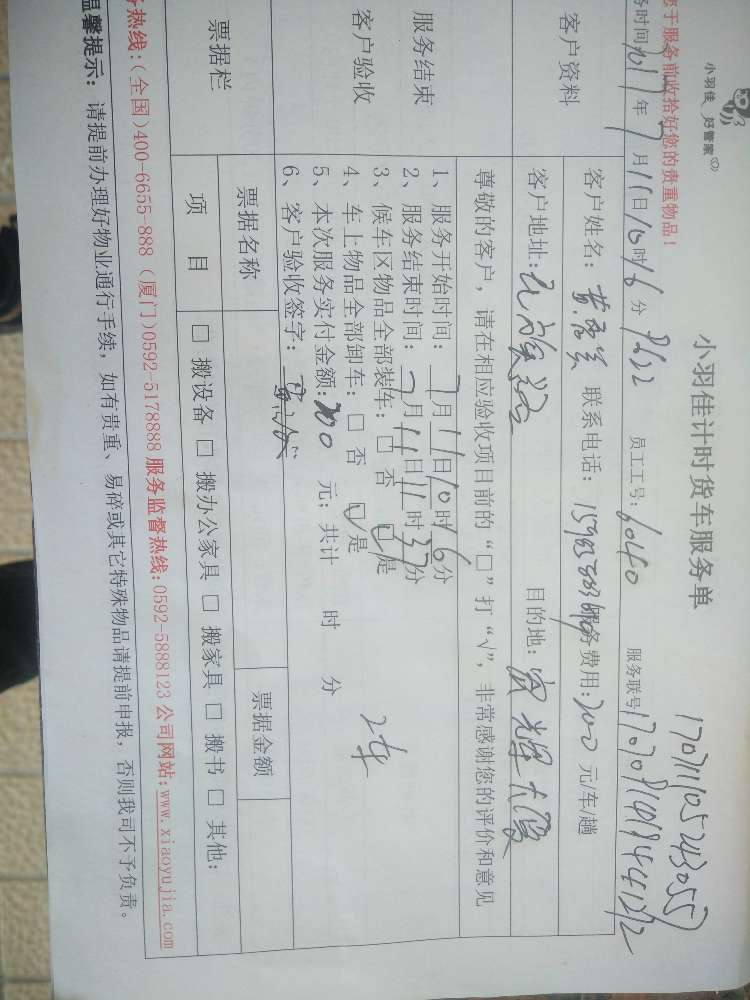 小羽佳 好管家
小羽佳计时货车服务单
您于服务前收拾好您的贵重物品！
务时间2017年7月11日10时16分 员工工号：6040 服务联号
客户资料
客户姓名： 联系电话： 服务费用：200元/车/趟
客户地址：民族路 目的地：富辉大厦
尊敬的客户，请在相应验收项目前的“□”打“√”，非常感谢您的评价和意见
服务结束
客户验收
1、服务开始时间：7月11日10时16分
2、服务结束时间：7月11日11时37分
3、候车区物品全部装车：□ 否 ☑是
4、车上物品全部卸车：□ 否 ☑是
5、本次服务实付金额：200 元；共计 时 分
2车
6、客户验收签字：
票据栏
票据名称 票据金额
项 目 □ 搬设备 □ 搬办公家具 □ 搬家具 □ 搬书 □ 其他：
务热线：(全国)400-6655-888 (厦门)0592-5178888 服务监督热线：0592-5888123 公司网站：www.xiaoyujia.com
温馨提示：请提前办理好物业通行手续，如有贵重、易碎或其它特殊物品请提前申报，否则我司不予负责。